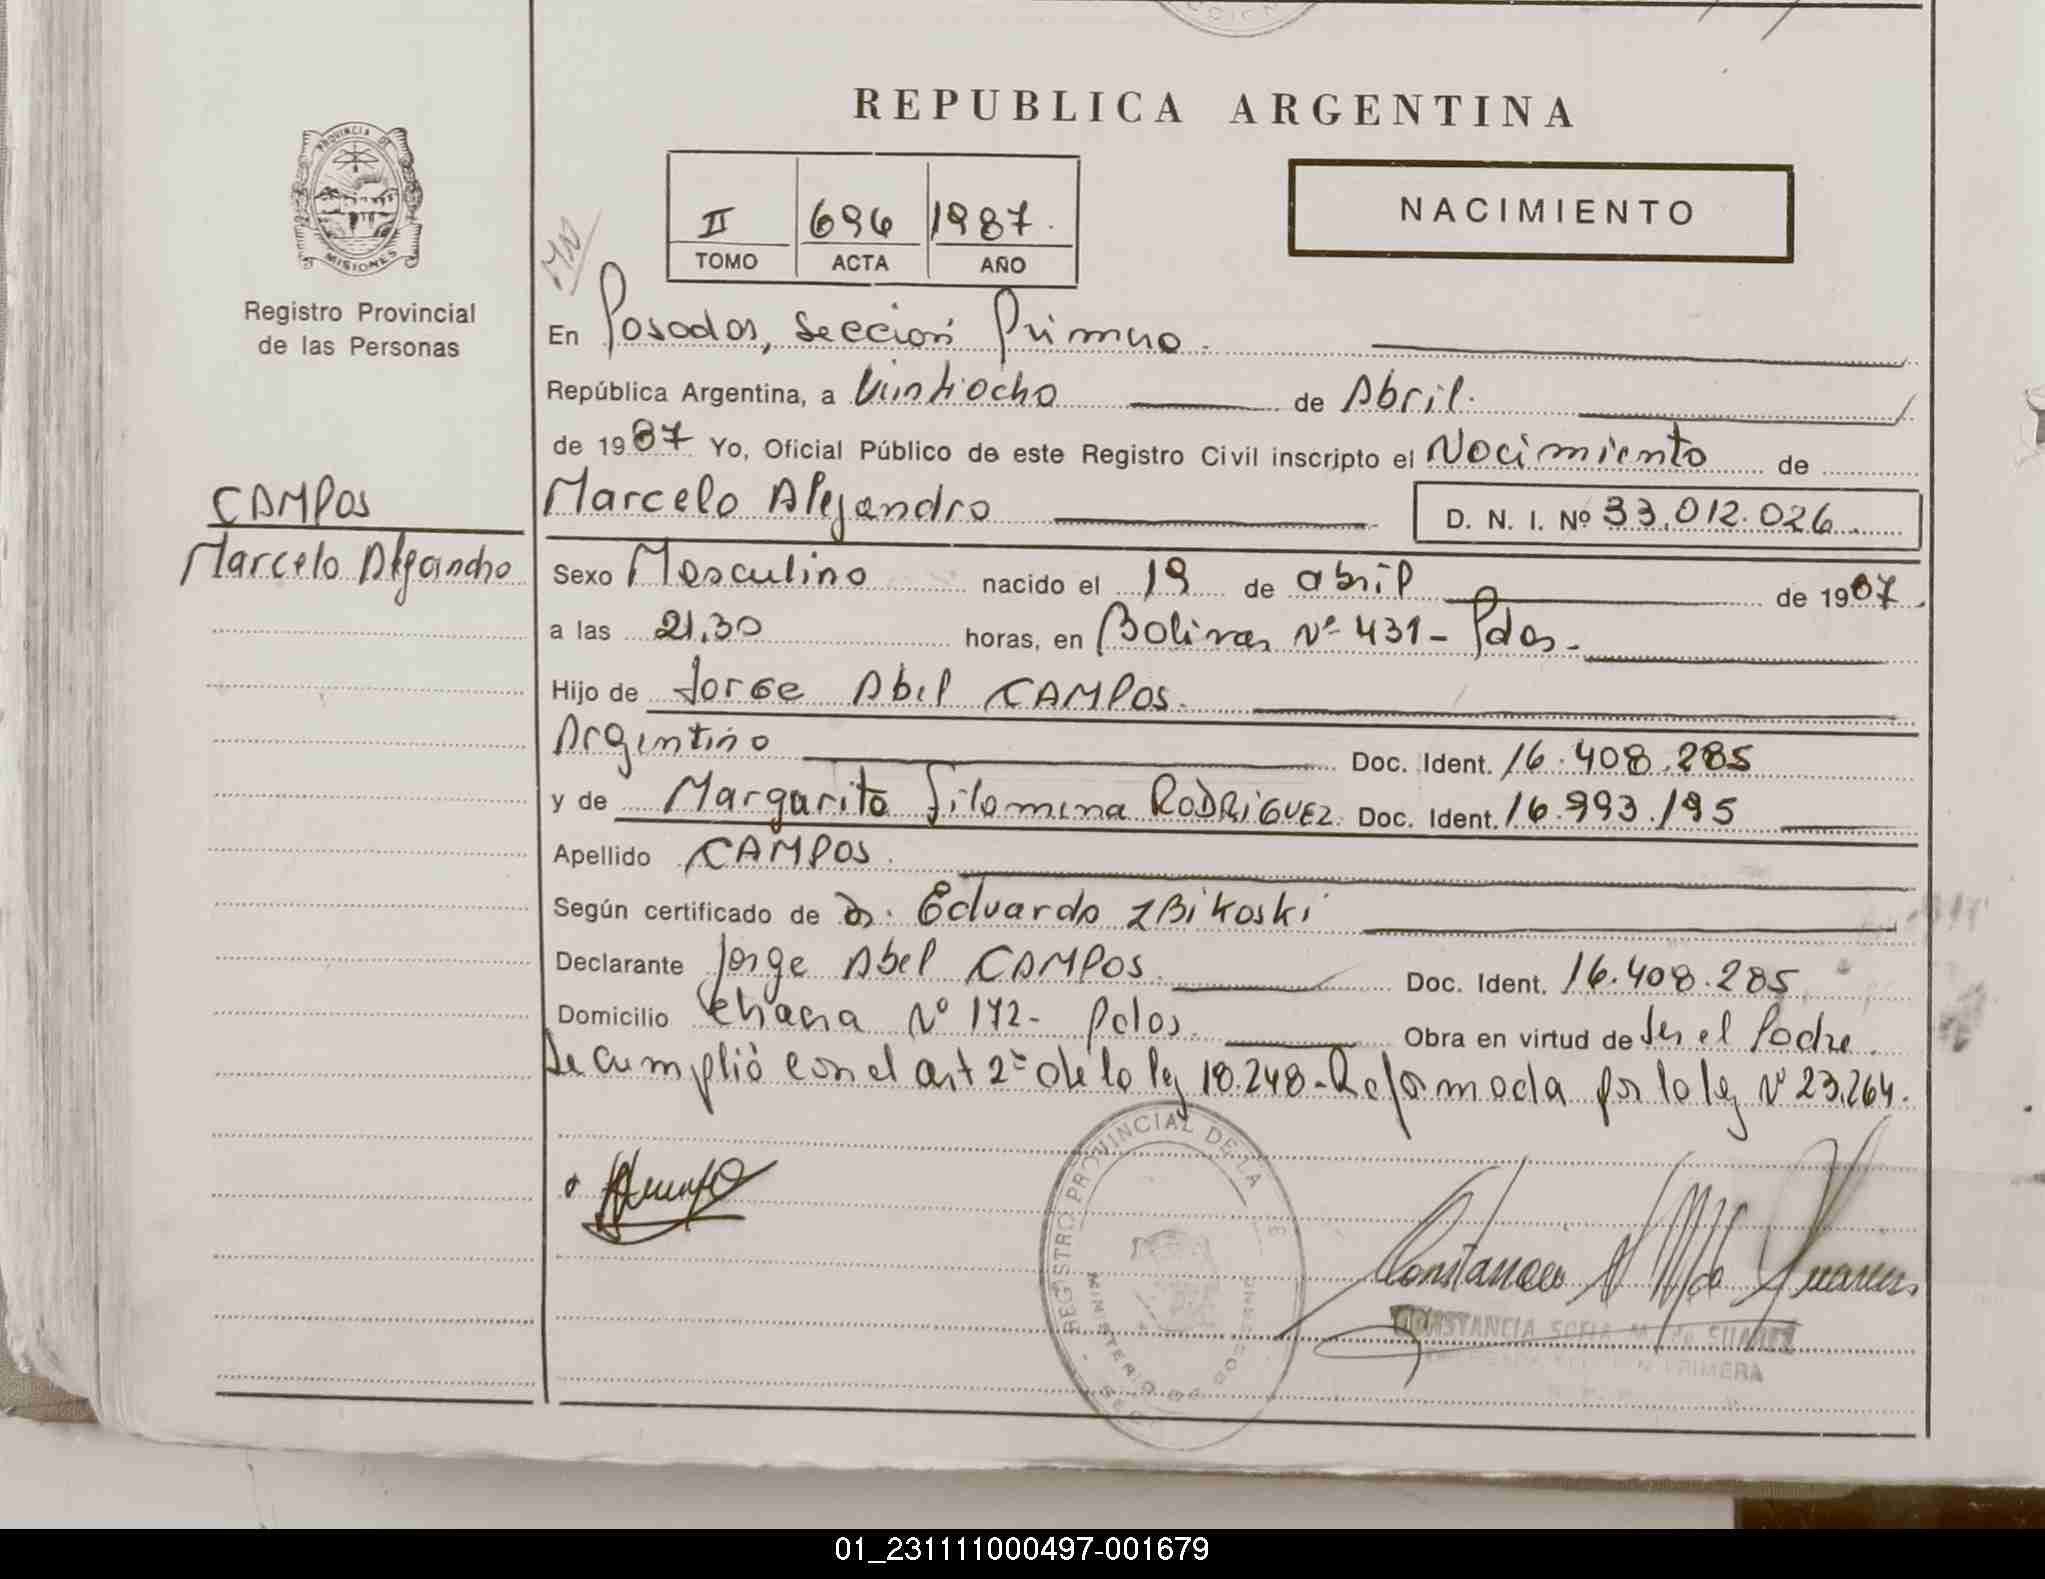 REPUBLICA ARGENTINA
PROVINCIA DE
MISIONES
Registro Provincial
de las Personas
II 696 1987.
TOMO ACTA AÑO
NACIMIENTO
En Posadas, Sección Primera.
República Argentina, a Veintiocho de Abril.
de 1987 Yo, Oficial Público de este Registro Civil inscripto el Nacimiento de
CAMPOS
Marcelo Alejandro
Marcelo Alejandro D. N. I. Nº 33.012.026
Sexo Masculino nacido el 19 de abril de 1987
a las 21.30 horas, en Bolivar Nº 431 - Pdas.
Hijo de Jorge Abel CAMPOS.
Argentino Doc. Ident. 16.408.285
y de Margarita Filomena RODRIGUEZ Doc. Ident. 16.993.195
Apellido CAMPOS.
Según certificado de Dr. Eduardo ZBikoski
Declarante Jorge Abel CAMPOS. Doc. Ident. 16.408.285
Domicilio Chacra Nº 172 - Pdas. Obra en virtud de Ser el Padre.
Se cumplió con el art 2º de la ley 18.248 - Reformada por la ley Nº 23.264.
REGISTRO PROVINCIAL DE LA
MINISTERIO DE GOBIERNO
Constancia S M de Suarez
CONSTANCIA SOFIA M. de SUAREZ
PRIMERA
01_231111000497-001679